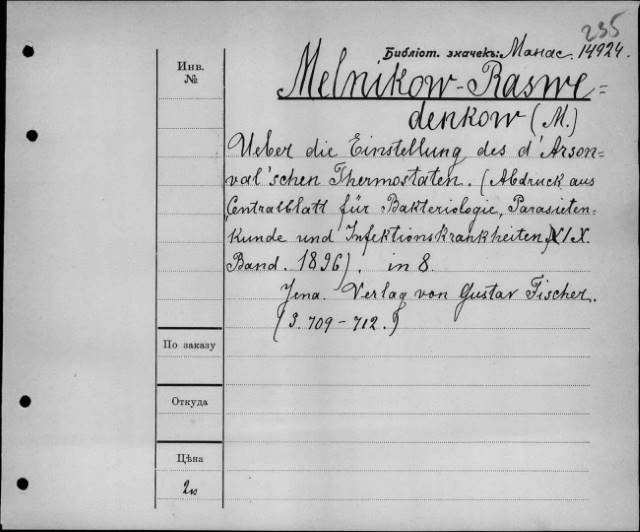 235
Библіот. значекъ: Манас. 14924.
Инв.
№
Melnikow-Raswe=
denkow (M.)
Ueber die Einstellung des d'Arson=
val'schen Thermostaten. (Abdruck aus
Centralblatt für Bakteriologie, Parasiten-
kunde und Infektionskrankheiten, XIX.
Band. 1896). in 8.
Jena. Verlag von Gustav Fischer.
(S. 709-712.)
По заказу
Откуда
Цѣна